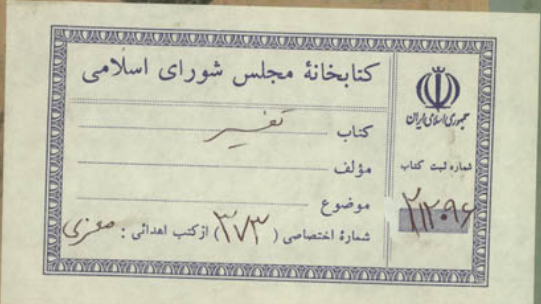 کتابخانهٔ مجلس شورای اسلامی
کتاب تفسیر
مؤلف
موضوع
شمارهٔ اختصاصی ( ۳۷۳ ) از کتب اهدائی : معزی
جمهوری اسلامی ایران
شماره ثبت کتاب
۲۱۲۰۹۶